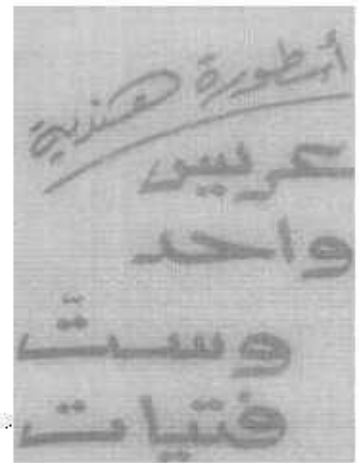 أسطورة هندية
عريس
واحد
وستّ
فتيات